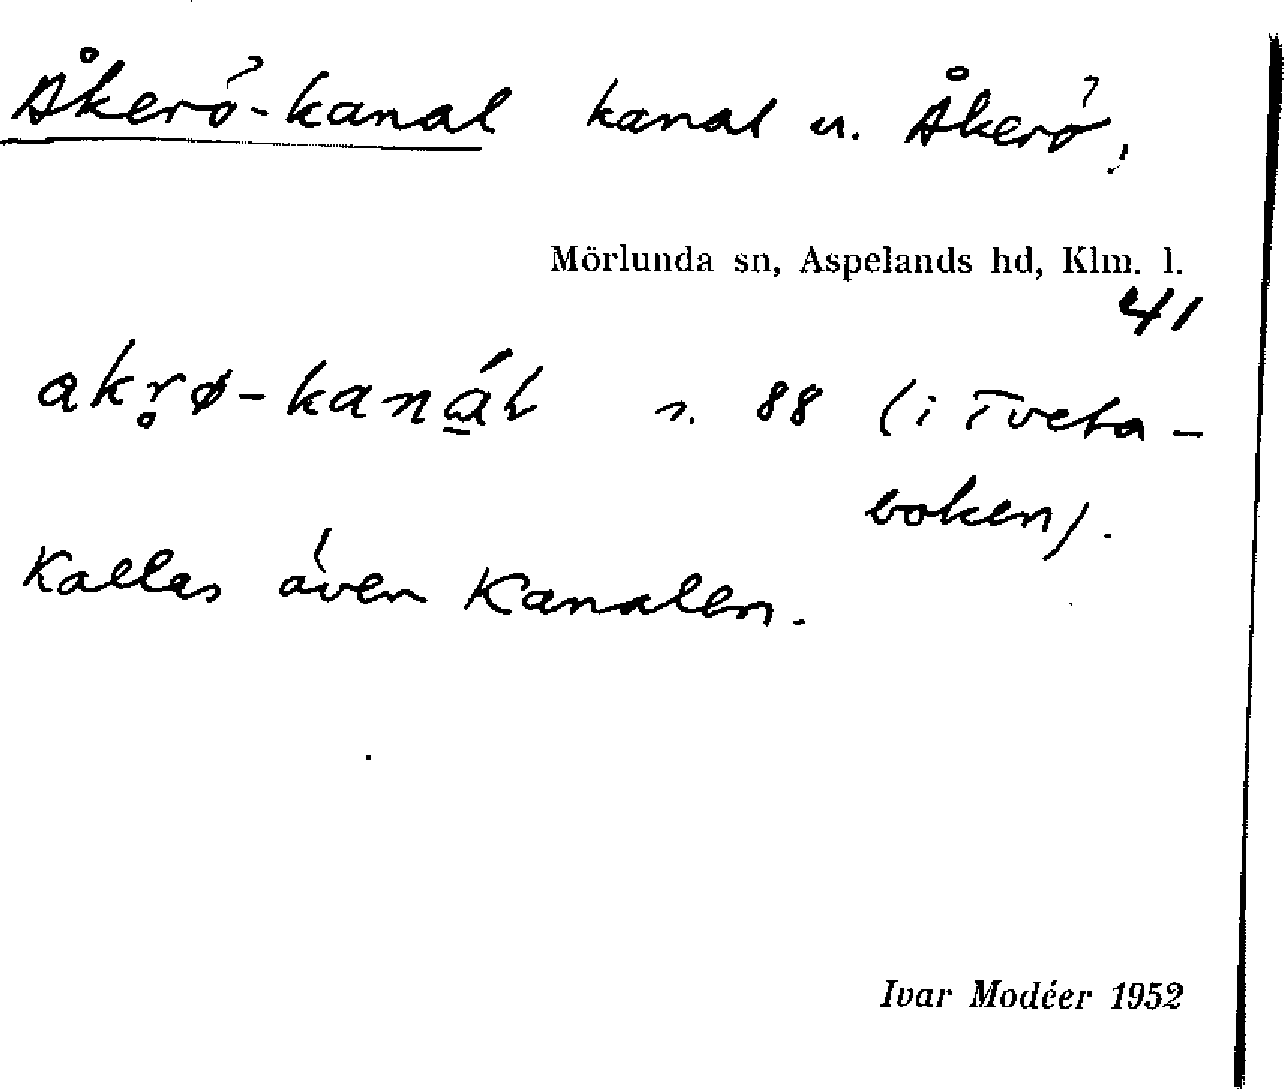 Åkerö-kanal kanal u. Åkerö,
Mörlunda sn, Aspelands hd, Klm. l.
41
akr̥ø-kanál s. 88 (i Tveta-
boken).
Kallas även Kanalen.
Ivar Modéer 1952